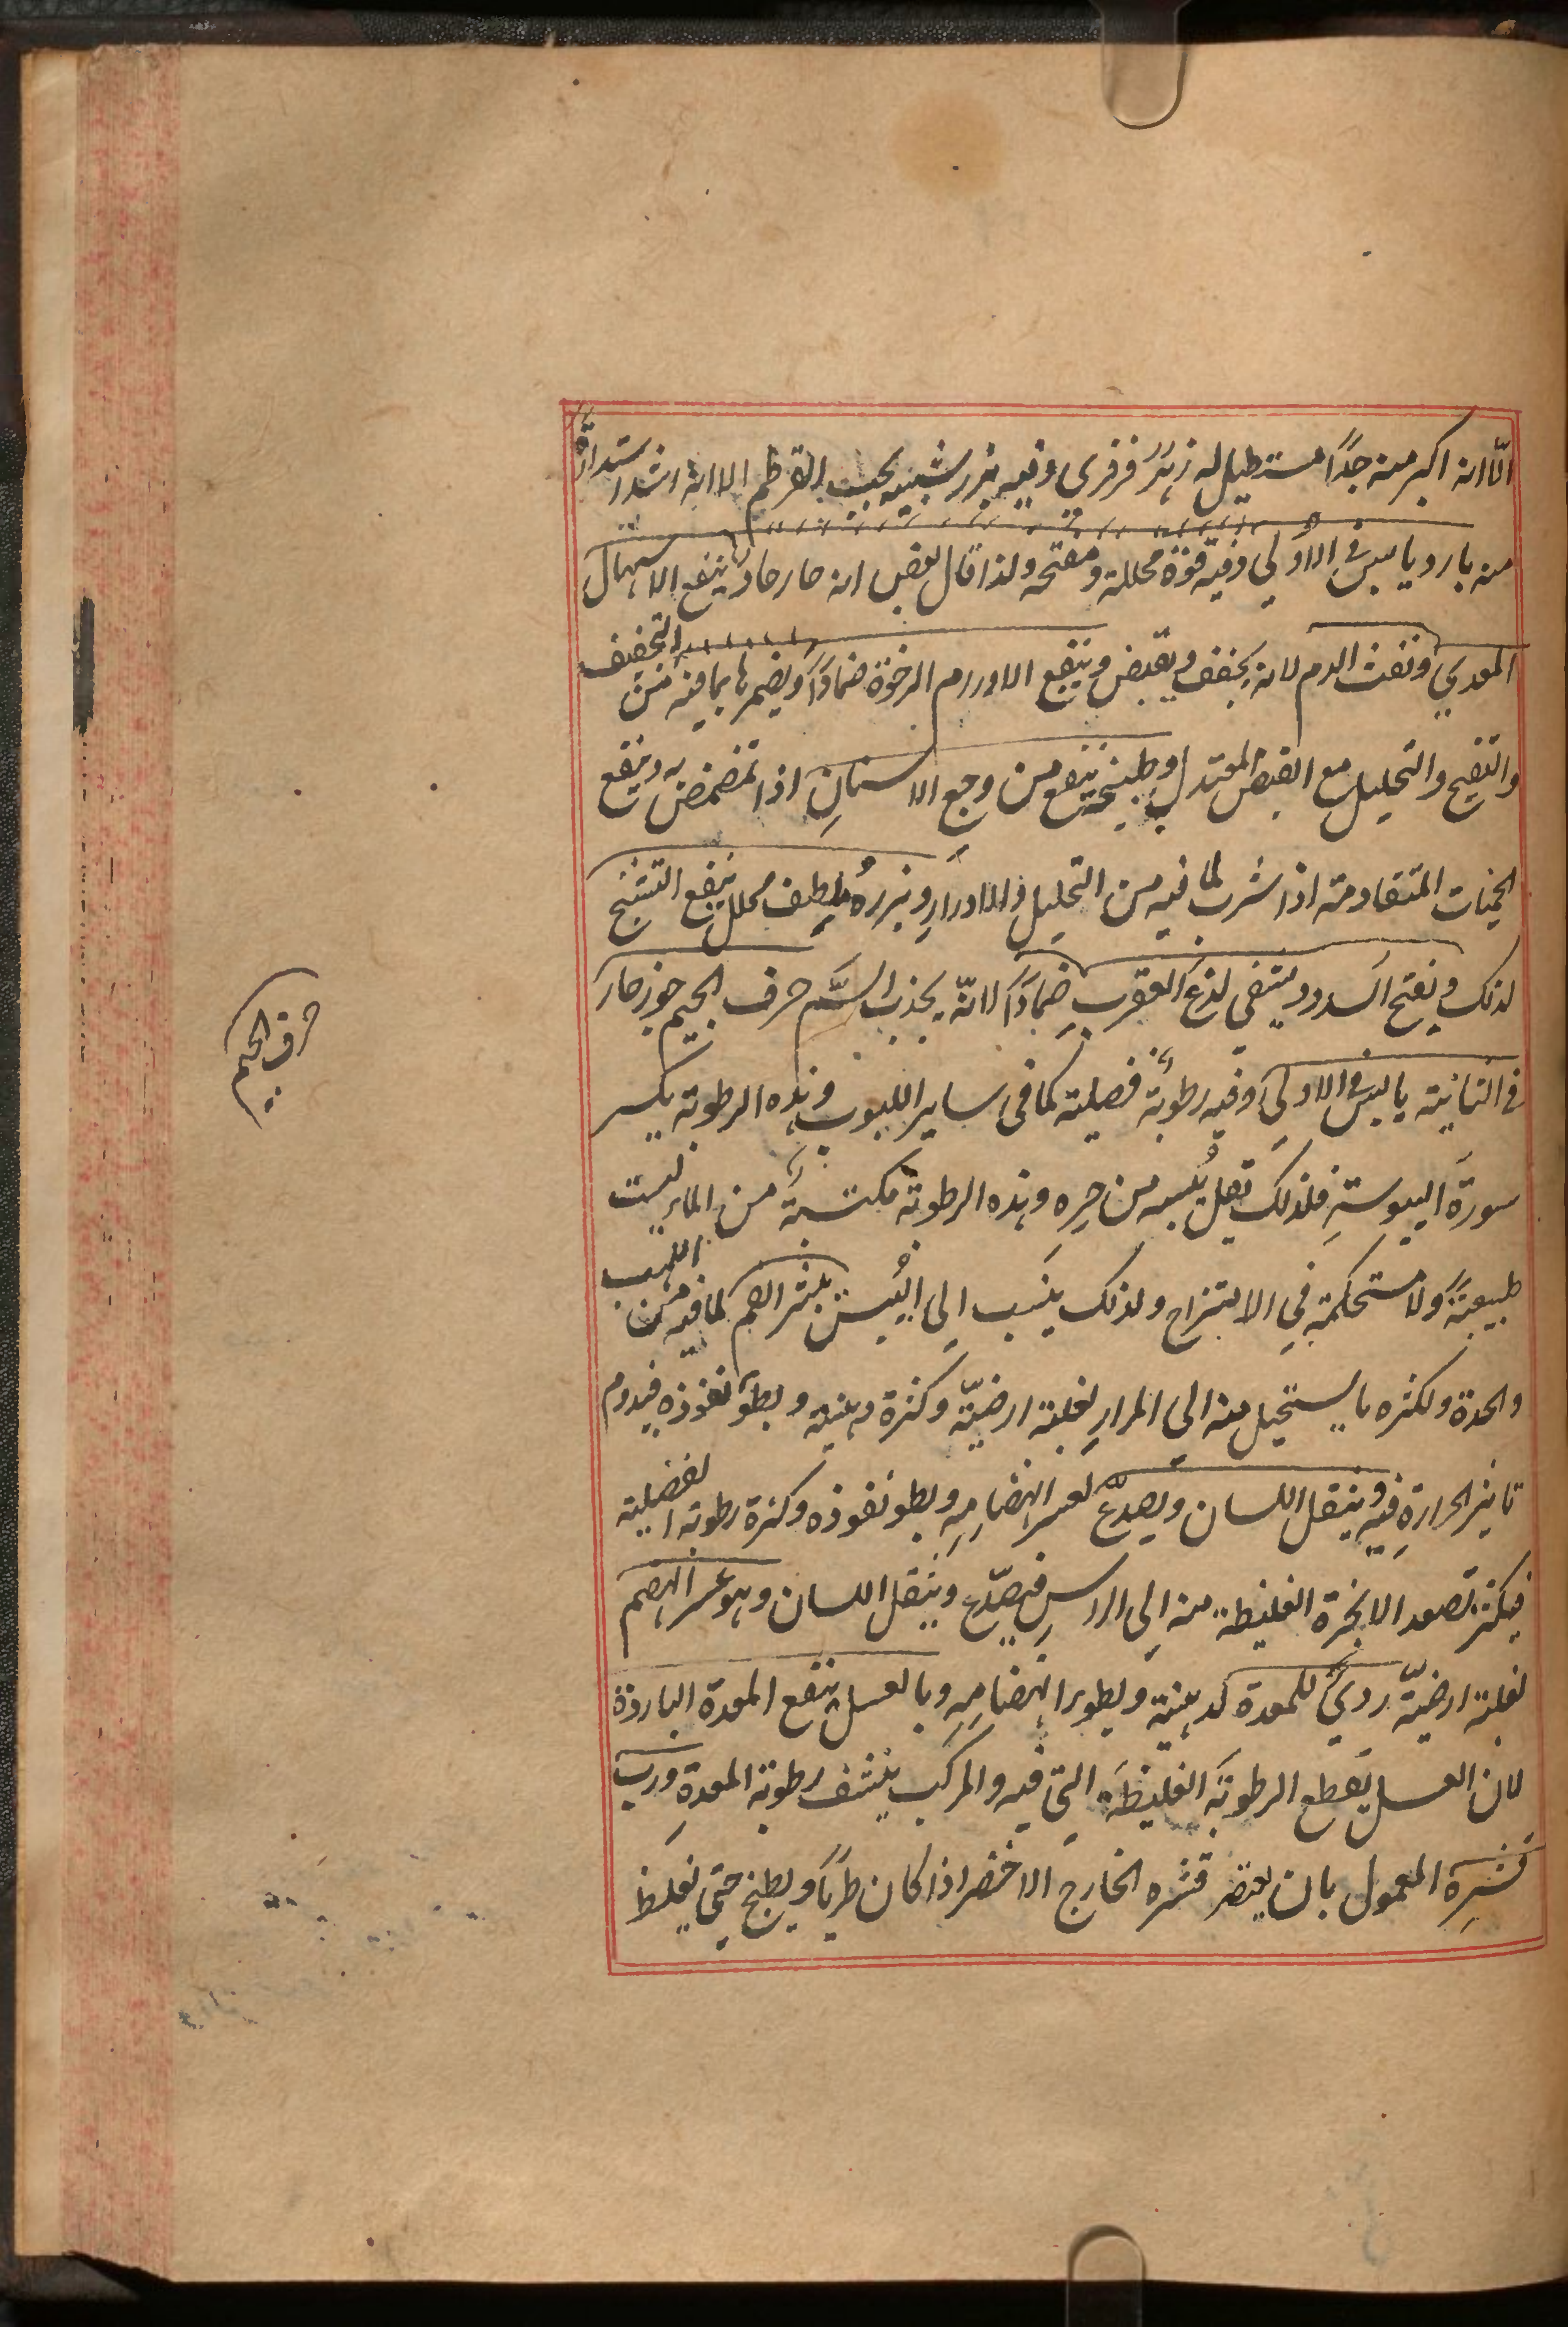 الّا انه اكبر منه جدًا مستطيل له زهر فرفري وفيه بزر شبيه بحب القرطم الا انه اشد استدارة
منه بارد يابس فى الاولي وفيه قوة محللة ومفتحه ولذا قال بعض انه حار حاد ينفع الاسهال
المعدي ونفث الدم لانه يجفف ويقبض وينفع الاورام الرخوة ضمادًا ويضمرها بما فيه من التجفيف
والتفتيح والتحليل مع القبض المعتدل وطبيخه ينفع من وجع الاسنان اذا تمضمض به وينفع
الحميات المتقادمة اذا شرب لما فيه من التحليل والادرار وبزره ملطف محلل ينفع التشنج
لذلك ويفتح السدد ويشفي لذع العقرب ضمادًا لانّه يجذب السَّم حرف الجيم جوز حار
فى الثانية يابس فى الاولى وفيه رطوبة فضلية كما فى ساير اللبوب وهذه الرطوبة يكسر
سورة اليبوسة فلذلك يقل يُبسه من حره وهذه الرطوبة مكتسبة من الماء ليست
طبيعيةً ولا مستحكمة في الامتزاج ولذلك ينسب الى اليُبس يبثر الفم لما فيه من اللهيب
والحدة ولكثره ما يستحيل منه الى المرار لغلبة ارضيّته وكثرة دهنيته وبطو نفوذه فيدوم
تاثير الحرارة فيه ويثقل اللسان ويصدّع لعسر انهضامه وبطو نفوذه وكثرة رطوبته الفضلية
فيكثر تصعد الابخرة الغليظة منه الى الراس فيصدّع ويثقل اللسان وهو عسر الهضم
لغلبة ارضيّته رديّ للمعدة لدهنيته وبطو انهضامه وبالعسل ينفع المعدة الباردة
لان العسل يقطع الرطوبة الغليظة التي فيه والمركب ينشف رطوبة المعدة ورب
قشره المعمول بان يعتصر قشره الخارج الاخضر اذا كان طريًا ويطبخ حتى يغلظ
حرف الجيم